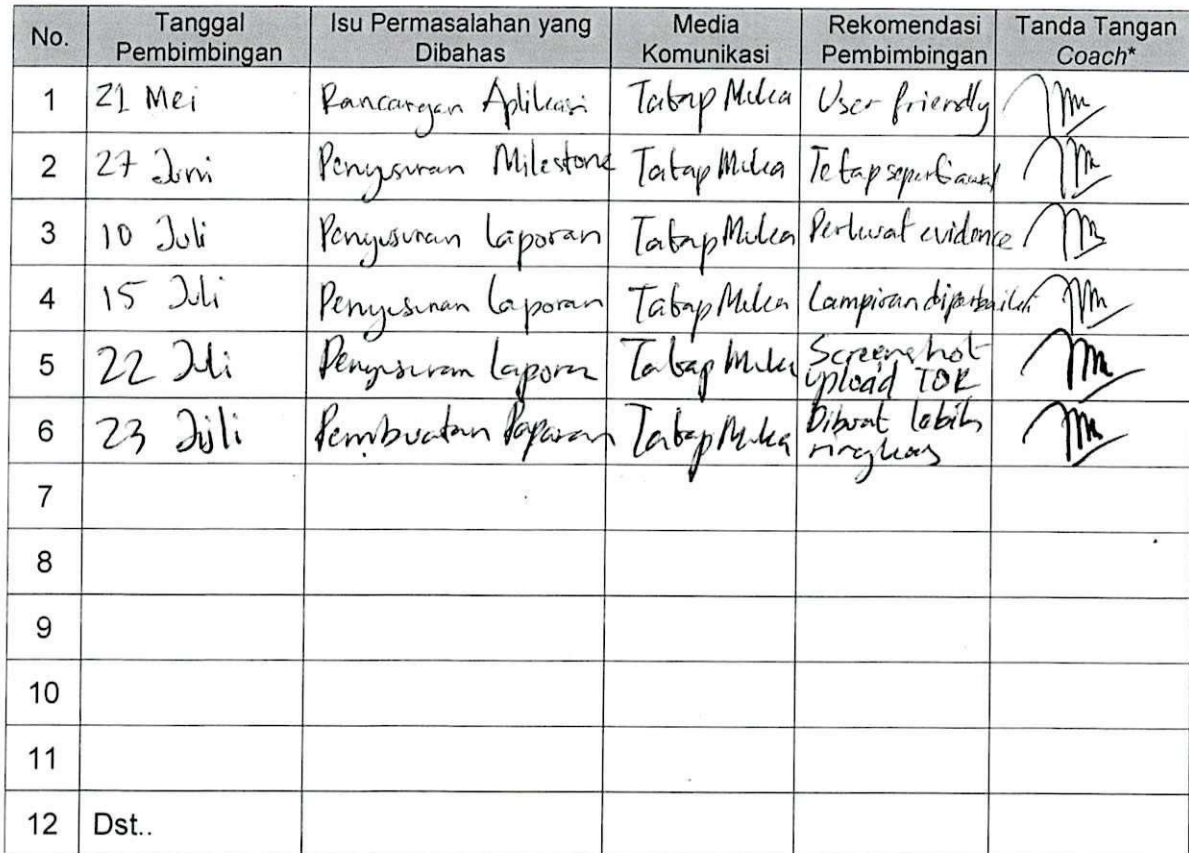 No. Tanggal Pembimbingan Isu Permasalahan yang Dibahas Media Komunikasi Rekomendasi Pembimbingan Tanda Tangan Coach*
1 21 Mei Rancangan Aplikasi Tatap Muka User friendly
2 27 Juni Penyusunan Milestone Tatap Muka Tetap seperti awal
3 10 Juli Penyusunan laporan Tatap Muka Perkuat evidence
4 15 Juli Penyusunan laporan Tatap Muka Lampiran diperbaiki
5 22 Juli Penyusunan laporan Tatap Muka Screenshot upload TOR
6 23 Juli Pembuatan Paparan Tatap Muka Dibuat lebih ringkas
7
8
9
10
11
12 Dst..